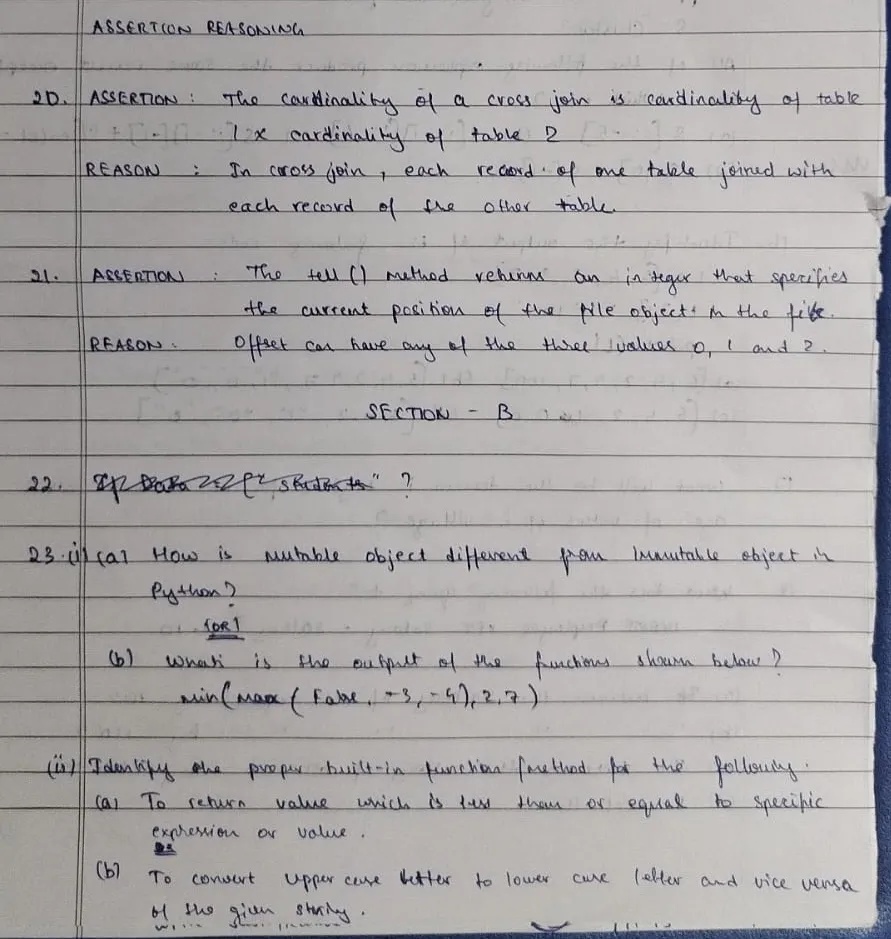 ASSERTION REASONING
20. ASSERTION : The cardinality of a cross join is cardinality of table
1 x cardinality of table 2
REASON : In cross join, each record of one table joined with
each record of the other table.
21. ASSERTION : The tell() method returns an integer that specifies
the current position of the file object in the file.
REASON : Offset can have any of the three values 0, 1 and 2.
SECTION - B
22. "students" ?
23.(i) (a) How is mutable object different from Immutable object in
Python?
(OR)
(b) What is the output of the functions shown below?
min(max(False, -3, -4), 2, 7)
(ii) Identify the proper built-in function/method for the following.
(a) To return value which is less than or equal to specific
expression or value.
(b) To convert upper case letter to lower case letter and vice versa
of the given string.